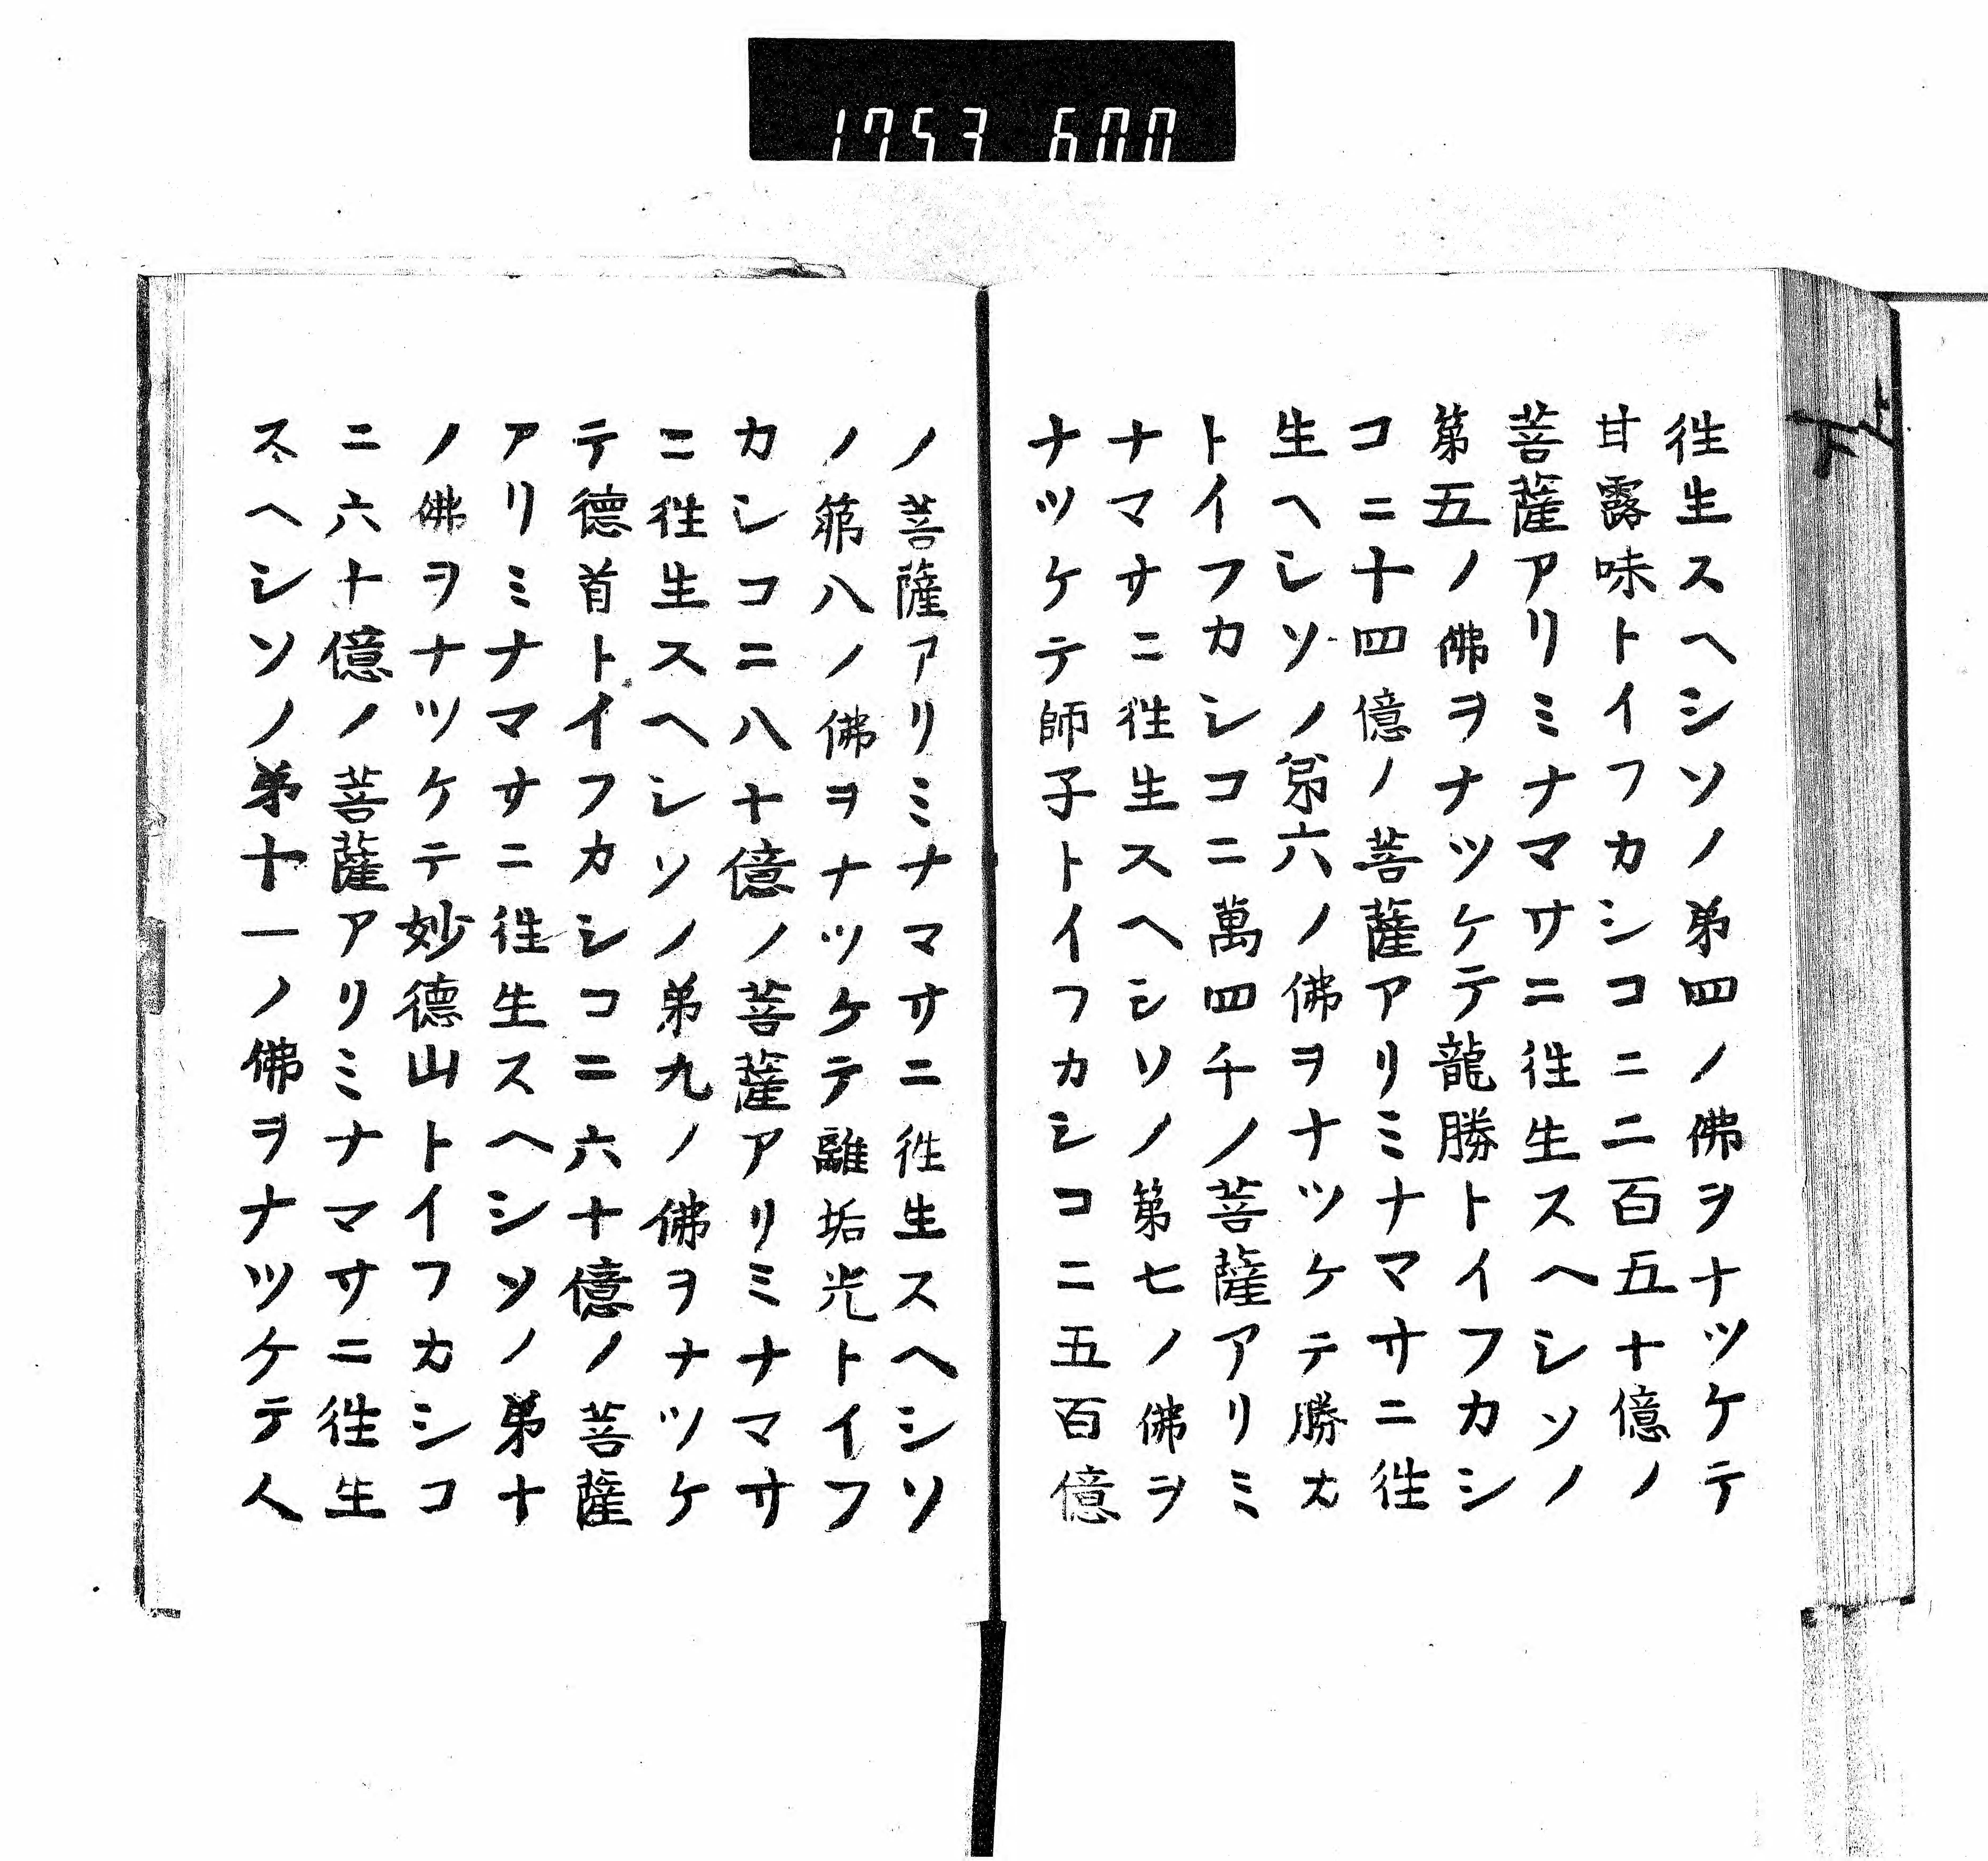 1753 600
徃生スヘシソノ弟四ノ佛ヲナツケテ
甘露味トイフカシコニ二百五十億ノ
菩薩アリミナマサニ徃生スヘシソノ
第五ノ佛ヲナツケテ龍勝トイフカシ
コニ十四億ノ菩薩アリミナマサニ徃
生ヘシソノ第六ノ佛ヲナツケテ勝力
トイフカシコニ萬四千ノ菩薩アリミ
ナマサニ徃生スヘシソノ第七ノ佛ヲ
ナツケテ師子トイフカシコニ五百億
ノ菩薩アリミナマサニ徃生スヘシソ
ノ第八ノ佛ヲナツケテ離垢光トイフ
カシコニ八十億ノ菩薩アリミナマサ
ニ徃生スヘシソノ弟九ノ佛ヲナツケ
テ德首トイフカシコニ六十億ノ菩薩
アリミナマサニ徃生スヘシソノ弟十
ノ佛ヲナツケテ妙德山トイフカシコ
ニ六十億ノ菩薩アリミナマサニ徃生
スヘシソノ弟十一ノ佛ヲナツケテ人